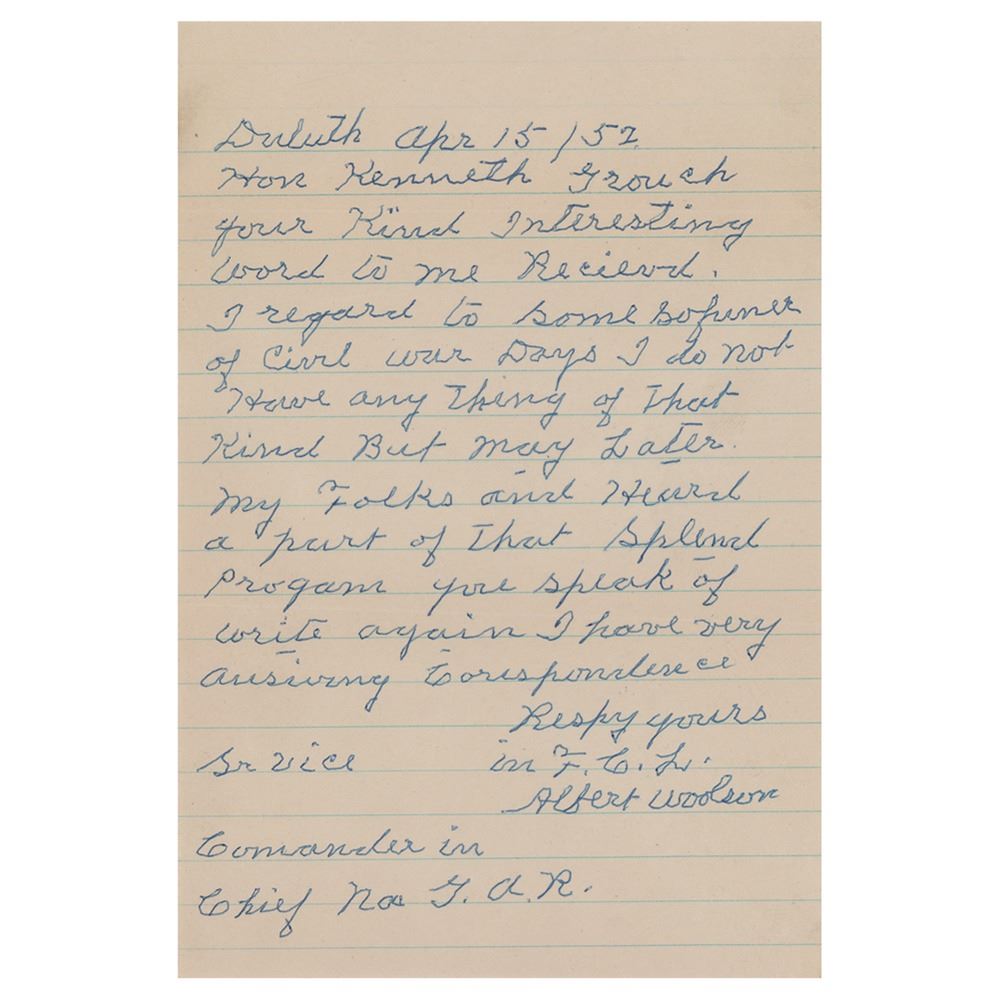 Duluth Apr 15 / 52
Hon Kenneth Grouch
your Kind Interesting
word to me Recievd.
I regard to some Sofuner
of Civil war Days I do not
Have any Thing of That
Kind But may Later.
My Folks and Heard
a part of That Splend
Progam you speak of
write again I have very
Correspondence
Respy yours
Sr vice in F. C. L.
Albert Woolson
Comander in
Chief Na G. A. R.